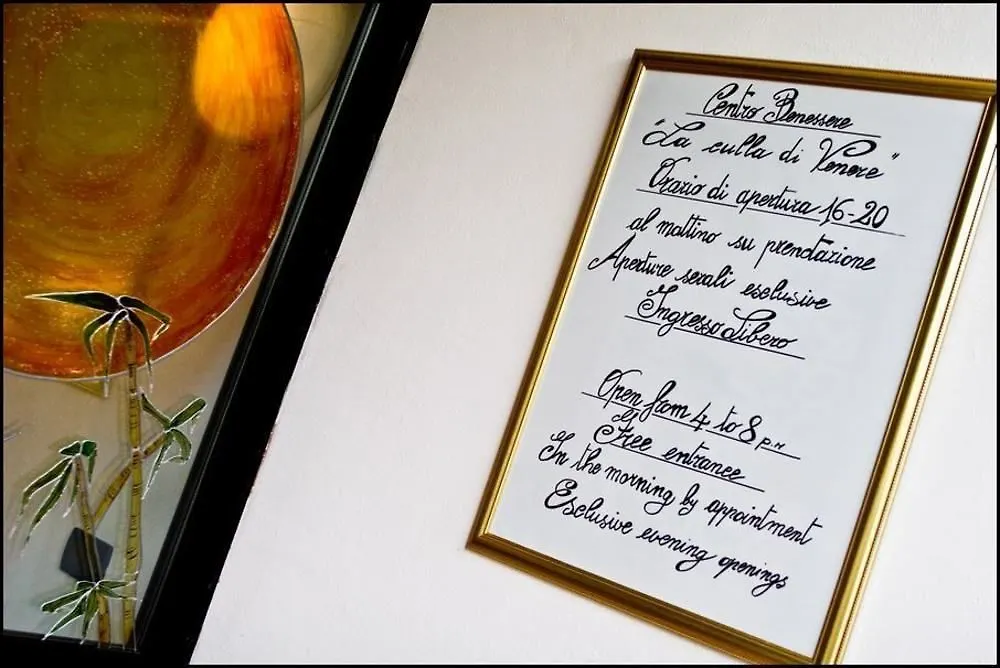 Centro Benessere
"La culla di Venere"
Orario di apertura 16-20
al mattino su prenotazione
Aperture serali esclusive
Ingresso Libero
Open from 4 to 8 p.m
Free entrance
In the morning by appointment
Esclusive evening openings